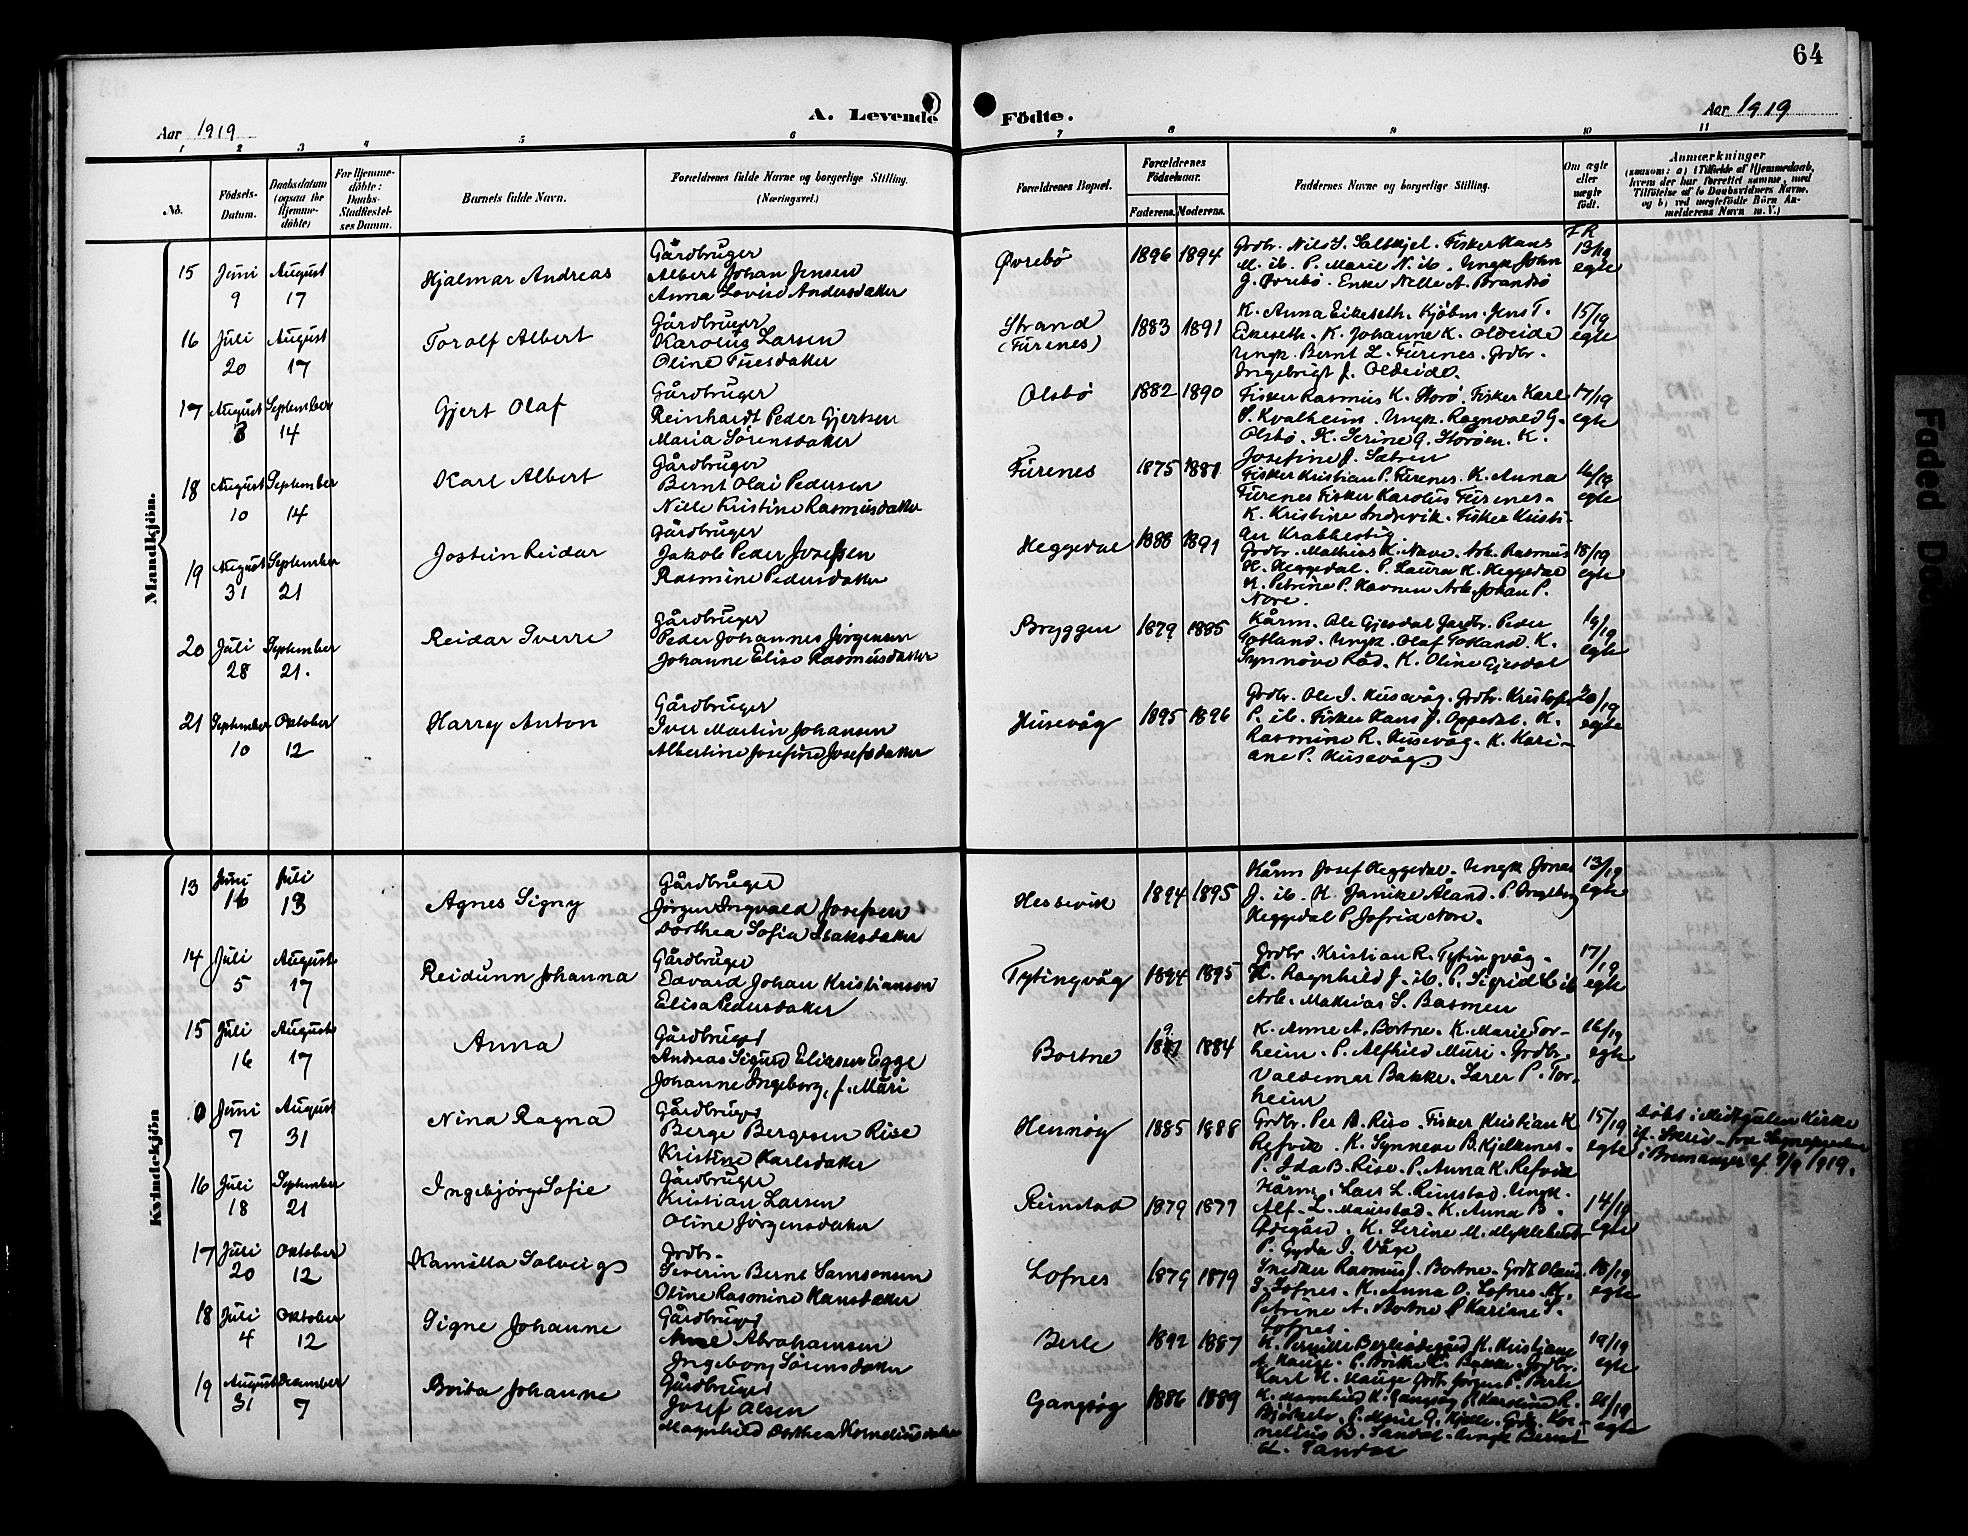 64
A. Levende Födte.
Aar 1919
Aar 1919
1 2 3 4 5 6 7 8 9 10 11
No.
Födsels-Datum.
Daabsdatum (ogsaa för Hjemmedöbte)
For Hjemmedöbte: Daabs-Stadfæstelses Datum.
Barnets fulde Navn.
Forældrenes fulde Navne og borgerlige Stilling. (Næringsvei.)
Forældrenes Bopæl.
Forældrenes Födselsaar.
Faderens. Moderens.
Faddernes Navne og borgerlige Stilling.
Om ægte eller uægte födt.
Anmærkninger
(saasom: a) i Tilfælde af Hjemmedaab,
hvem der har forrettet samme, med
Tilföielse af to Daabsvidners Navne,
og b) ved uægtefödte Börn An-
melderens Navn m. V.)
Mandkjön.
15 Juni 9 August 17 Hjalmar Andreas
Gårdbruger
Albert Johan Jensen
Anna Lovise Andersdatter
Øvrebö 1896 1894
Grdbr. Nils S. Saltkjel. Fisker Hans
M. ib. P. Marie N. ib. Ungk. John
J. Øvrebö. Enke Nelle A. Brandsö
FR 13/19 egte
16 Juli 20 August 17 Torolf Albert
Gårdbruger
Karolius Larsen
Oline Tuesdatter
Strand (Furenes) 1883 1891
K. Anna Eikeseth. Kjöbm. Jens T.
Eikeseth. K. Johanne K. Oldeide
Ungk. Bernt L. Furenes. Grdbr.
Ingebrigt J. Oldeide.
15/19 egte
17 August 3 September 14 Gjert Olaf
Gårdbruger
Reinhardt Peder Gjertsen
Maria Sörensdatter
Olsbö 1882 1890
Fisker Rasmus K. Horö. Fisker Karl
S. Kvalheim. Ungk. Ragnvald G.
Olsbö. K. Serine G. Horöen. K.
Josefine J. Sætren
17/19 egte
18 August 10 September 14 Karl Albert
Gårdbruger
Bernt Olai Pedersen
Nille Kristine Rasmusdatter
Furenes 1875 1881
Fisker Kristian P. Furenes. K. Anna
Furenes Fisker Karolus Furenes.
K. Kristine Indrevik. Fisker Kristi-
an Krabbestig.
16/19 egte
19 August 31 September 21 Jostein Reidar
Gårdbruger
Jakob Peder Josefsen
Rasmine Pedersdatter
Heggedal 1888 1891
Grdbr. Mathias K. Nave. Arb. Rasmus
H. Heggedal. P. Laura K. Heggedal
K. Petrine P. Havnen Arb. Johan P.
Nore.
18/19 egte
20 Juli 28 September 21. Reidar Sverre
Gårdbruger
Peder Johannes Jörgensen
Johanne Elise Rasmusdatter
Bryggen 1879 1885
Kårm. Ole Gjesdal Gardbr. Peder
Totland. Ungk. Olaf Totland K.
Synnöve Råd. K. Oline Gjesdal
19/19 egte
21 September 10 Oktober 12 Harry Anton
Gårdbruger
Iver Martin Johansen
Albertine Josefine Josefsdatter
Husevåg 1895 1896
Grdbr. Ole I. Husevåg. Grdbr. Kristofer
P. ib. Fisker Hans J. Oppedal. K.
Rasmine R. Husevåg. K. Kari-
ane P. Husevåg
20/19 egte
Kvindekjön
13 Juni 16 Juli 13 Agnes Signy
Gårdbruger
Jörgen Ingvald Josefsen
Dorthea Sofia Isaksdatter
Hessevik 1894 1895
Kårm Josef Heggedal. Ungk Jonas
J. ib. K. Janike Åland. P. Ingeborg
Heggedal P. Jofrid Nore.
13/19 egte
14 Juli 5 August 17 Reidunn Johanna
Gårdbruger
Edvard Johan Kristiansen
Elisa Pedersdatter
Tytingvåg 1894 1895
Grdbr. Kristian R. Tytingvåg.
K. Ragnhild J. ib. P. Sigrid K ib
Arb. Mathias S. Basmen
17/19 egte
15 Juli 16 August 17 Anna
Gårdbruger
Andreas Sigurd Eliasen Egge
Johanne Ingeborg, f. Muri
Bortne 1884
K. Anne A. Bortne. K. Marie Tor-
heim. P. Alfhild Muri. Grdbr.
Valdemar Bakke. Lærer P. Tor-
heim
16/19 egte
0 Juni 7 August 31 Nina Ragna
Gårdbruger
Berge Bergesen Rise
Kristine Karlsdatter
Hennöy 1885 1888
Grdbr. Per B. Rise. Fisker Kristian K
Refvik. K. Synneve B. Kjelkenes.
P. Ida B. Rise. P. Anna K. Refvik
15/19 egte
Döbt i Midtgulen Kirke
if. Skriv. fra Sogneprest
i Bremanger af 9/9 1919.
16 Juli 18 September 21 Ingebjörg Sofie
Gårdbruger
Kristian Larsen
Oline Jörgensdatter
Reinstad 1879 1877
Kårm. Lars L. Reinstad. Ungk.
Alf. L. Maurstad. K. Anna B.
Ødegård. K. Serine M. Myklebust
P. Gyda I. Våge
14/19 egte
17 Juli 20 Oktober 12 Kamilla Solveig
Grdbr.
Severin Bernt Samsonsen
Oline Rasmine Hansdatter
Lofnes 1879 1879
Snedker Rasmus J. Bortne. Grdb. Olaus
S. Lofnes. K. Anna O. Lofnes. K.
Petrine A. Bortne P Kariane S.
Lofnes.
18/19 egte
18 Juli 4 Oktober 12 Signe Johanne
Gårdbruger
Abrahamsen
Ingeborg Sörensdatter
Berle 1892 1887
K. Pernille Berleödegård K. Kristiane
A. Hauge. P. Brithe L. Bakke. Grdbr.
Karl K. Hauge Grdb. Jörgen P. Berle
19/19 egte
19 August 31 December 7 Brita Johanne
Gårdbruger
Josef Olsen
Magnhild Dorthea Korneliusdatter
Gangsög 1886 1889
K. Magnhild K. Gangsög P. Karoline R.
Bjökelv. P. Marie G. Kjelle. Grdb. Kor-
nelius B. Tandal. Ungk Bernt
L. Tandal
21/19 egte
Faded Doc.